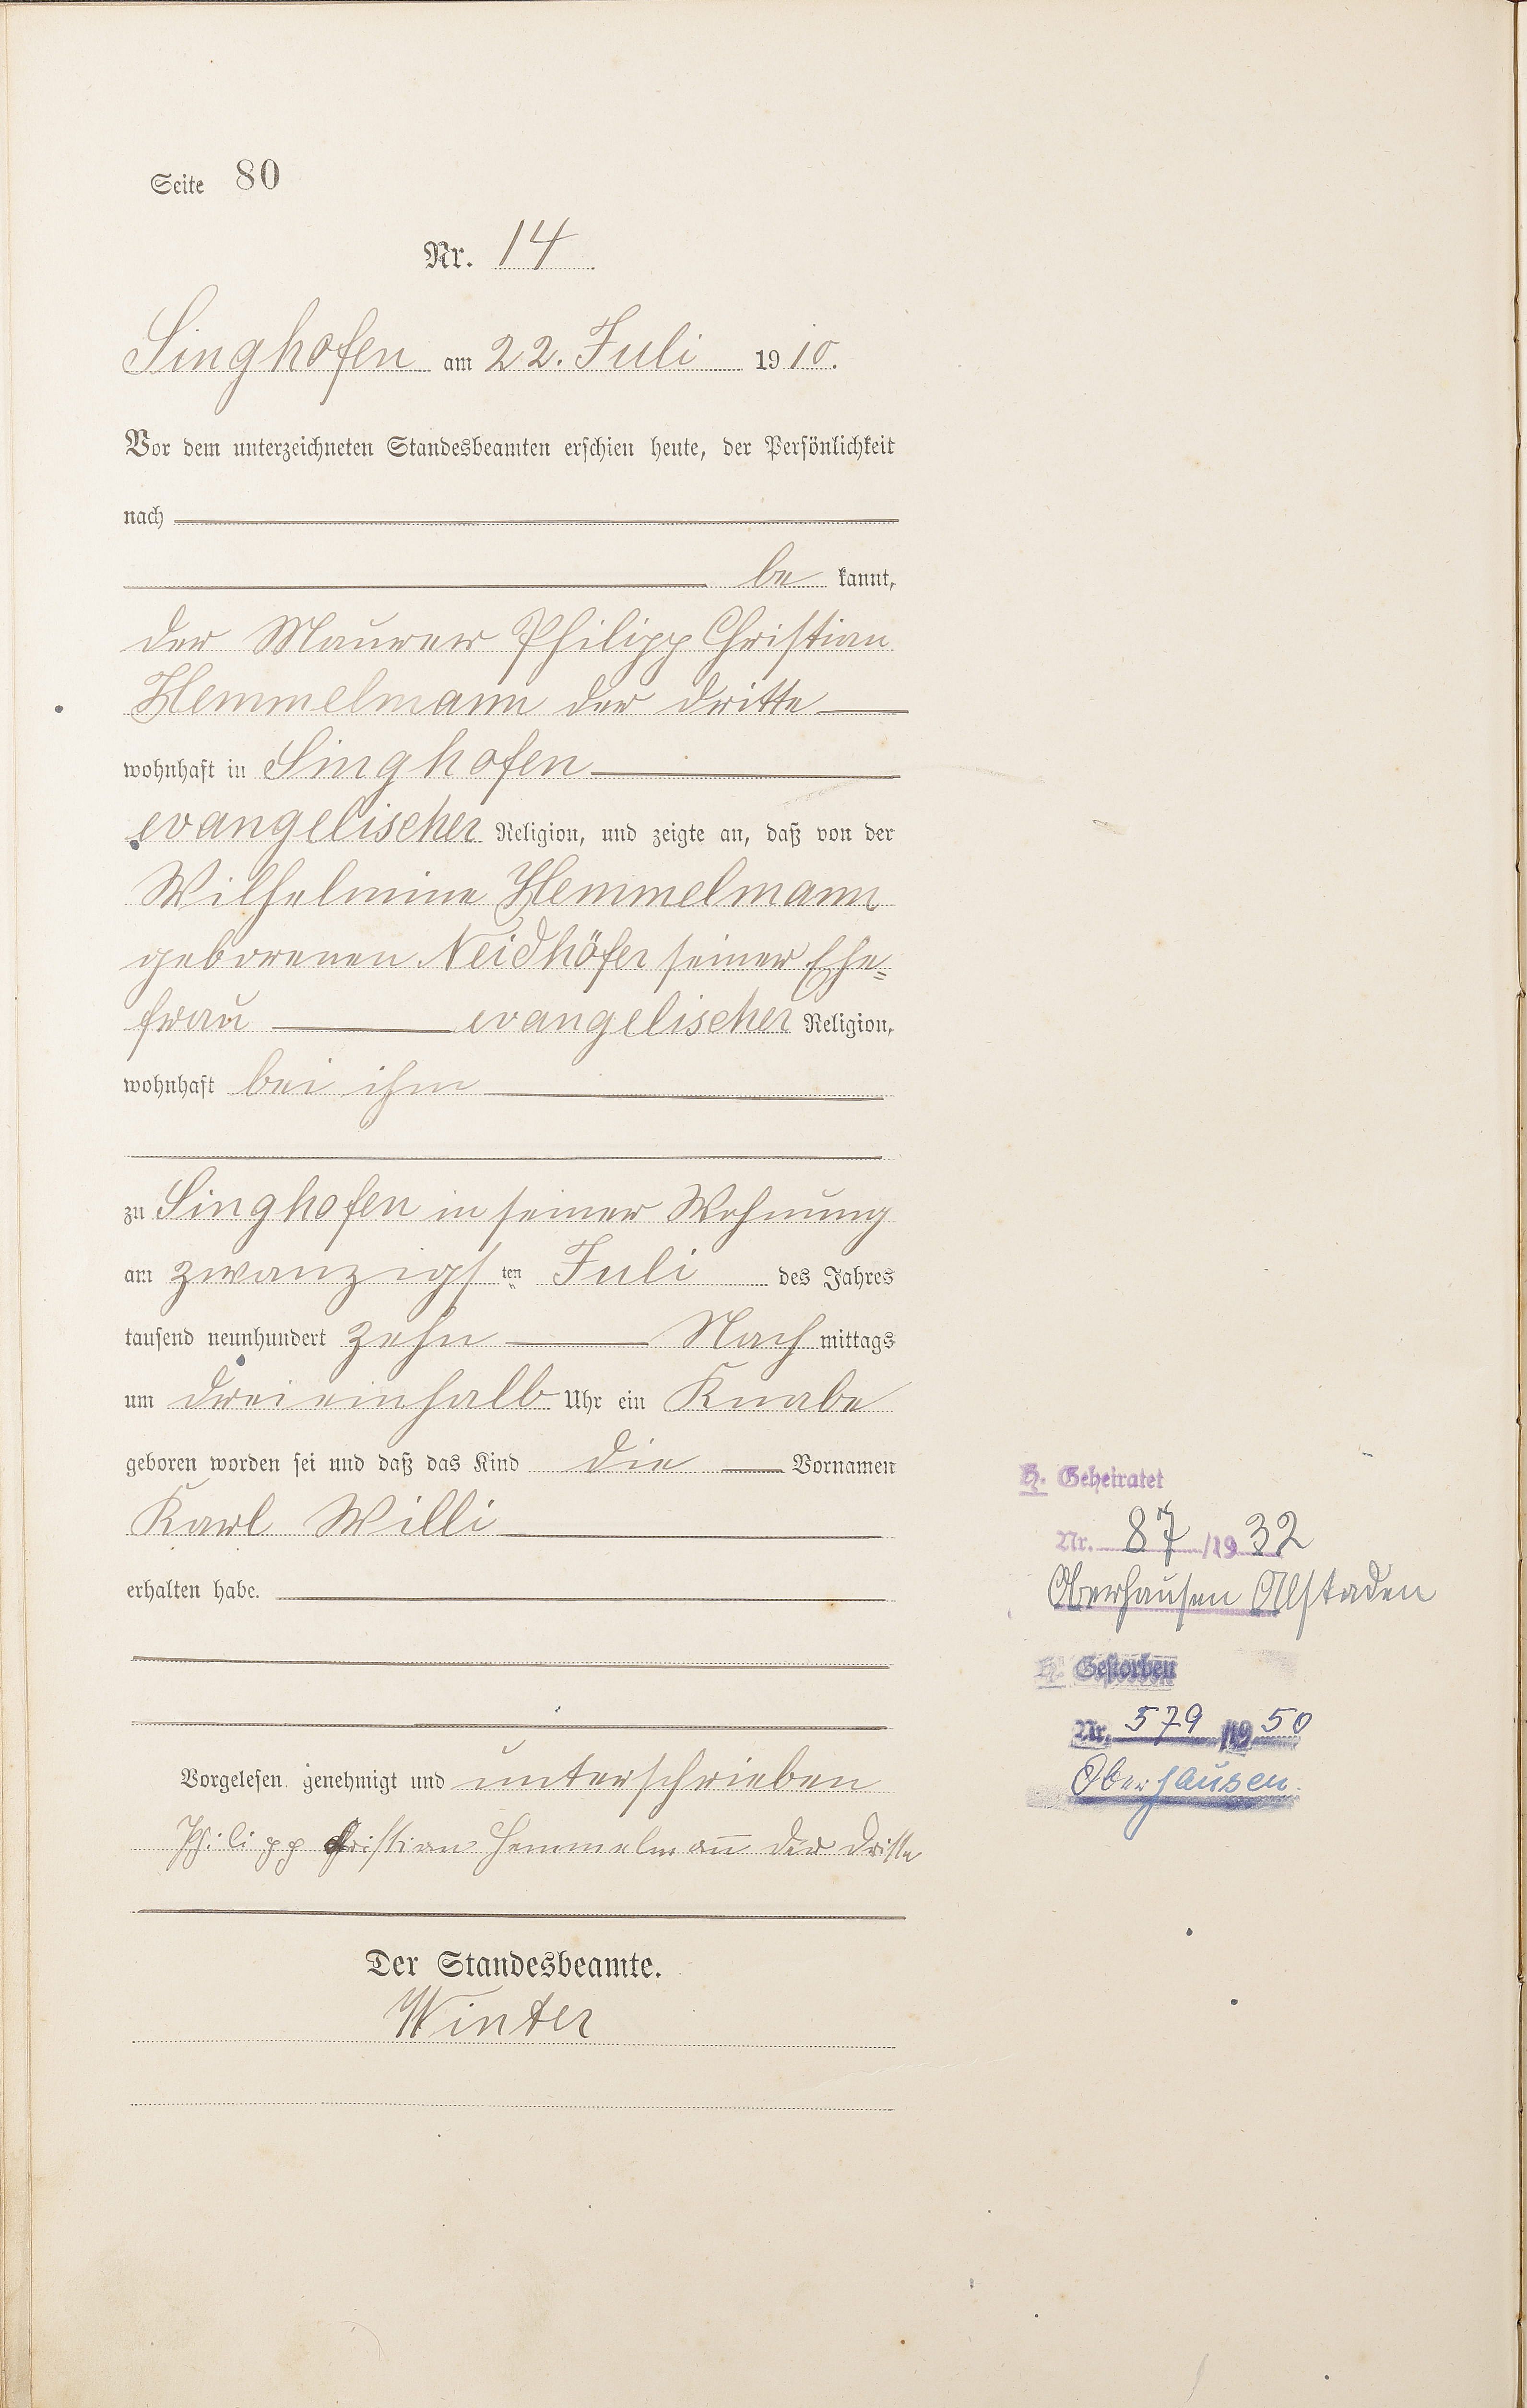 Seite 80
Nr. 14
Singhofen am 22. Juli 1910.
Vor dem unterzeichneten Standesbeamten erschien heute, der Persönlichkeit
nach
be kannt,
der Maurer Philipp Christian
Hemmelmann der dritte
wohnhaft in Singhofen
evangelischer Religion, und zeigte an, daß von der
Wilhelmine Hemmelmann
geborenen Neidhöfer seiner Ehe=
frau evangelischer Religion,
wohnhaft bei ihm
zu Singhofen in seiner Wohnung
am zwanzigsten Juli des Jahres
tausend neunhundert zehn Nachmittags
um dreieinhalb Uhr ein Knabe
geboren worden sei und daß das Kind die Vornamen
Karl Willi
erhalten habe.
Vorgelesen, genehmigt und unterschrieben
Philipp Christian Hemmelmann der dritte
Der Standesbeamte.
Winter
H. Geheiratet
Nr. 87/1932
Oberhausen Allstaden
H. Gestorben
Nr. 579/1950
Oberhausen.